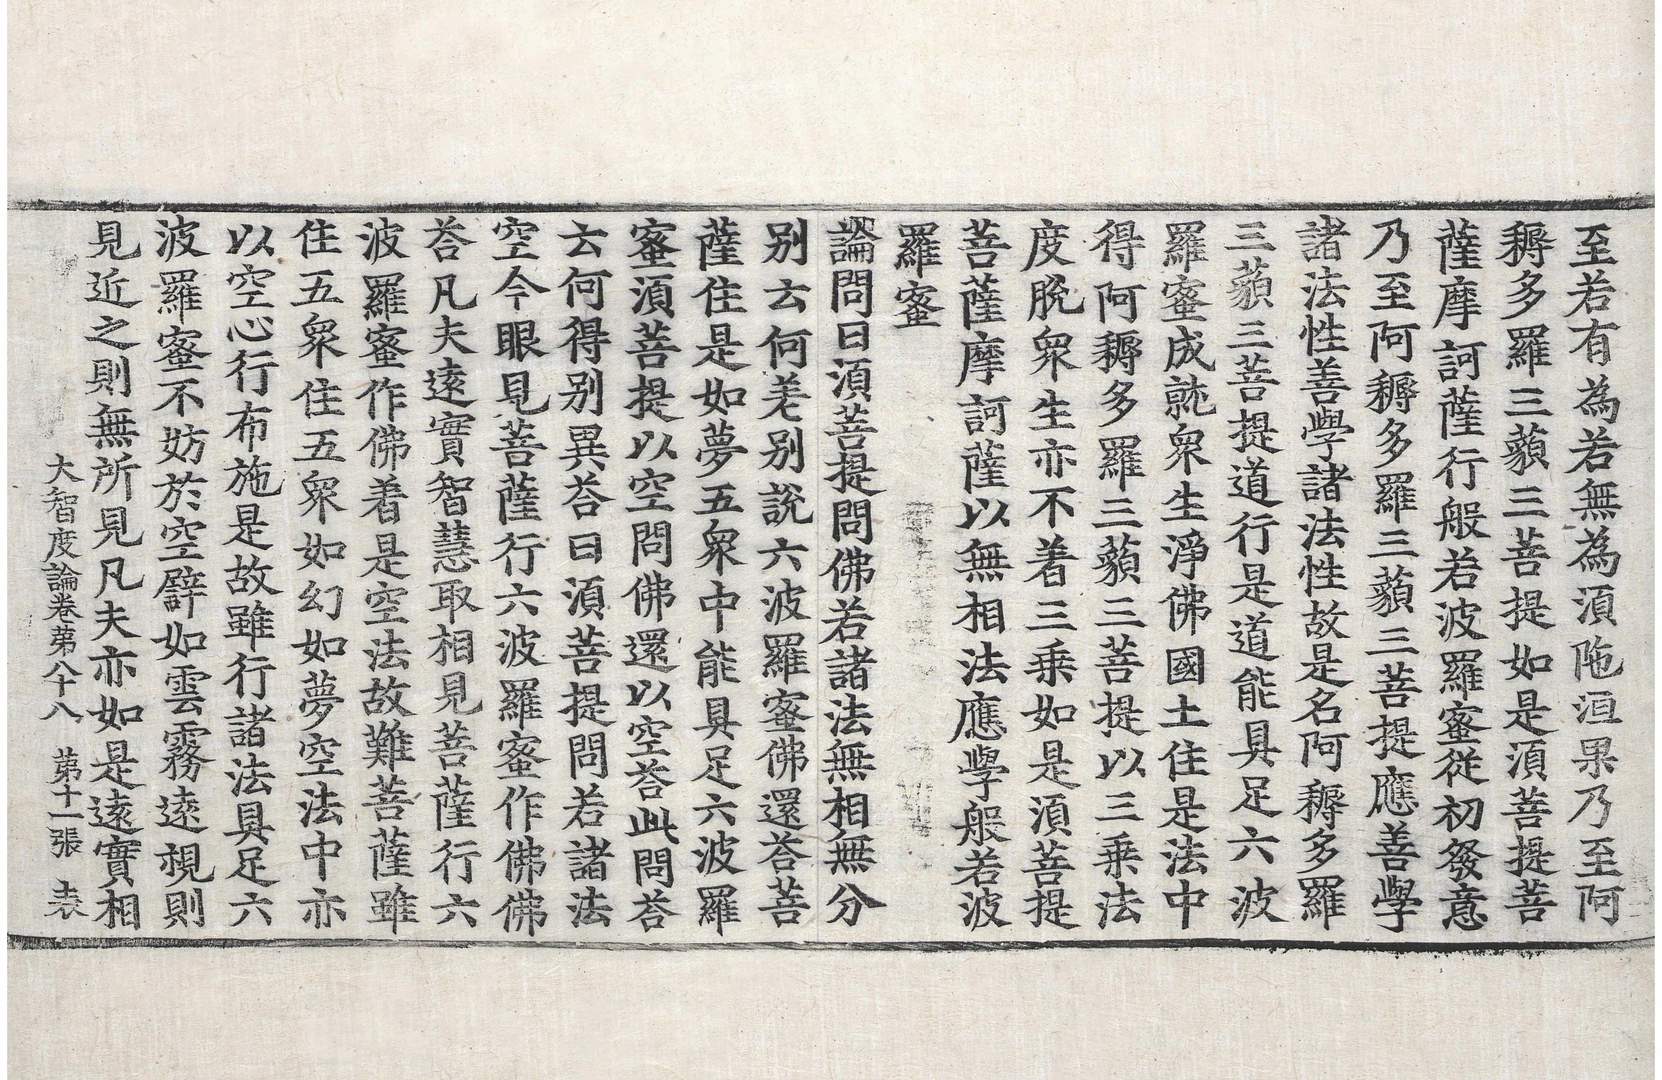 至若有為若無為湏陁洹果乃至阿
耨多羅三藐三菩提如是湏菩提菩
薩摩訶薩行般若波羅蜜從初發意
乃至阿耨多羅三藐三菩提應善學
諸法性善學諸法性故是名阿耨多羅
三藐三菩提道行是道能具足六波
羅蜜成就衆生淨佛國土住是法中
得阿耨多羅三藐三菩提以三乗法
度脫衆生亦不著三乗如是湏菩提
菩薩摩訶薩以無相法應學般若波
羅蜜
論問曰湏菩提問佛若諸法無相無分
别云何差别說六波羅蜜佛還荅菩
薩住是如夢五衆中能具足六波羅
蜜湏菩提以空問佛還以空荅此問荅
云何得别異荅曰湏菩提問若諸法
空今眼見菩薩行六波羅蜜作佛佛
荅凡夫遠實智慧取相見菩薩行六
波羅蜜作佛着是空法故難菩薩雖
住五衆住五衆如幻如夢空法中亦
以空心行布施是故雖行諸法具足六
波羅蜜不妨於空譬如雲霧遠視則
見近之則無所見凡夫亦如是遠實相
大智度論卷苐八十八 苐十一張 表